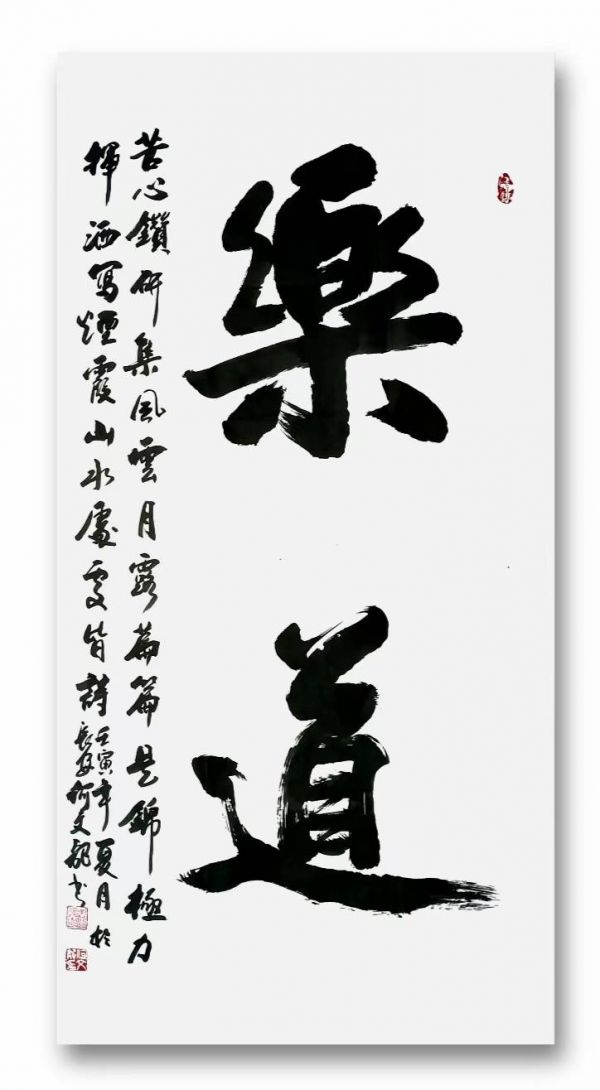 樂道
苦心鑽研集風雲月露篇篇是錦極力
揮洒寫煙霞山水處處皆詩
壬寅年夏月於
長安何文书